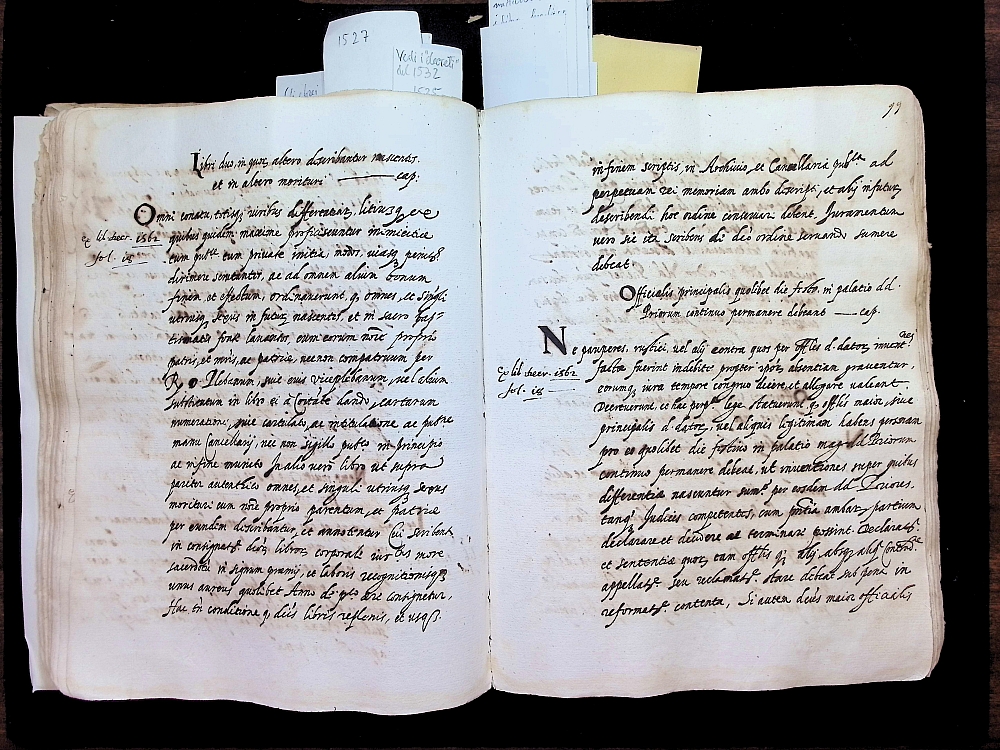 1527
Vedi i "decreti"
del 1532
1535
99
Libri duo, in quor altero discribantur nascentes.
et in altero morituri cap.
Omni conatu, totisq viribus differentias, litiusq, ex
ex lib. decr. 1562
fol. 18
quibus quidem maxime proficiscuntur inimicitiæ
tum pub.ce tum private initia, modos, viasq
dirimere ac ad omnem alium bonum
finem et effectum, ordinaverunt, q omnes, et singli
utriusq sexus in futur nascentes, et in sacro bap=
fonte cum eorum noīe proprio
patris, et mris, ac patriæ, necnon compatruum per
R. D. Plebanum, sive eius viceplebanum, vel alium
substitutum in libro ei a Coītate dando, cartarum
numeratione, sive cartulato, ac intitulatione ac
manu Cancellarij, nec non sigillo pubco in principio
ac in fine munito In alio vero libro ut supra
pariter autentico omnes, et singuli utriusq sexus
morituri cum noīe proprio parentum, et patriæ
per eundem discribantur, et annotentur Cui scribenti
in libror corporale more
sacerdotij in signum præmij, et laboris recognitionisq
unus aureus quolibet Anno de consignetur,
Hac tñ conditione q dictis libris repletis, et usq
in finem scriptis, in Archivio, et Cancellaria pub.ca ad
perpetuam rei memoriam ambo discripti, et alij in futur
describendi hoc ordine conservari debent, Iuramentum
vero sic ita scribens de dicto ordine servando sumere
debeat
Officialis principalis quolibet die festo in palatio dd.
Priorum continuo permanere debeant cap.
Ne pauperes, rustici, vel alij contra quos per offles d. dator
ex lib. decr. 1562
fol. 18
factæ fuerint indebite propter absentiam graventur,
eorumq iura tempore congruo dicere, et allegare valeant
Decreverunt, et hac lege Statuerunt, q offlis maior, sive
principalis d. dator, vel aliquis legitimam habens personam
pro eo quolibet die festivo in palatio mag. dd. Priorum
continuo permanere debeat, ut inventiones super quibus
differentiæ nascuntur per eosdem dd. Priores,
tanq Iudices competentes, cum ambar partium
declarare et decidere ac terminare possint,
et sententia quor tam offlis q alij absq aliq
appellat. seu reclamat. stare debeat sub pena in
reformat. contenta, Si autem dictus maior officialis